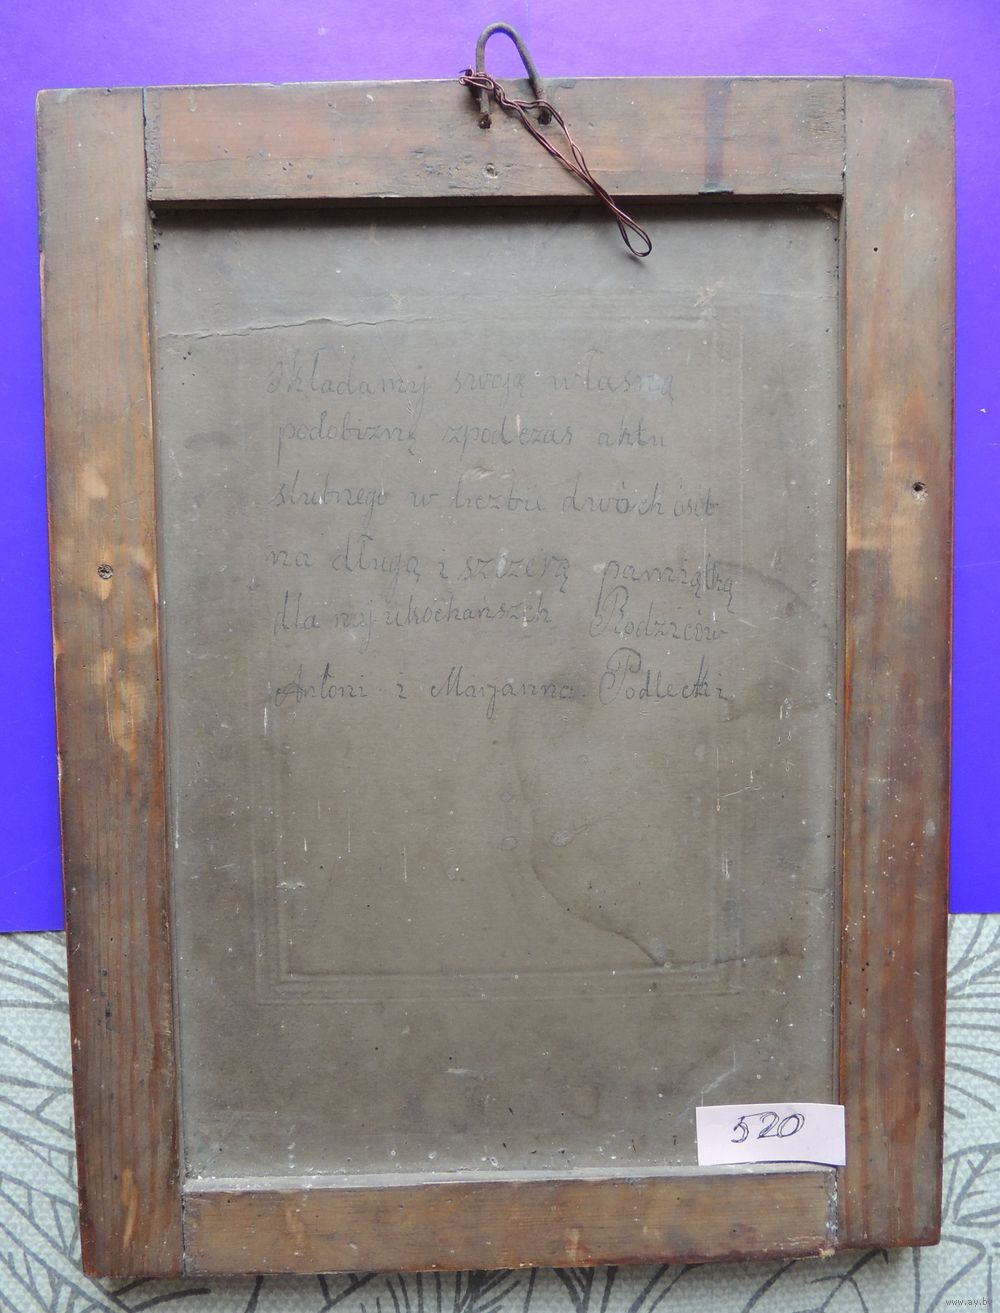 Składamy swoją własną
podobiznę zpodczas aktu
slubnego w liczbie dwóch ósób
na długą i szczerą pamiątkę
dla najukochańszch Rodziców
Antoni i Maryanna Podlecki
520
www.ay.by